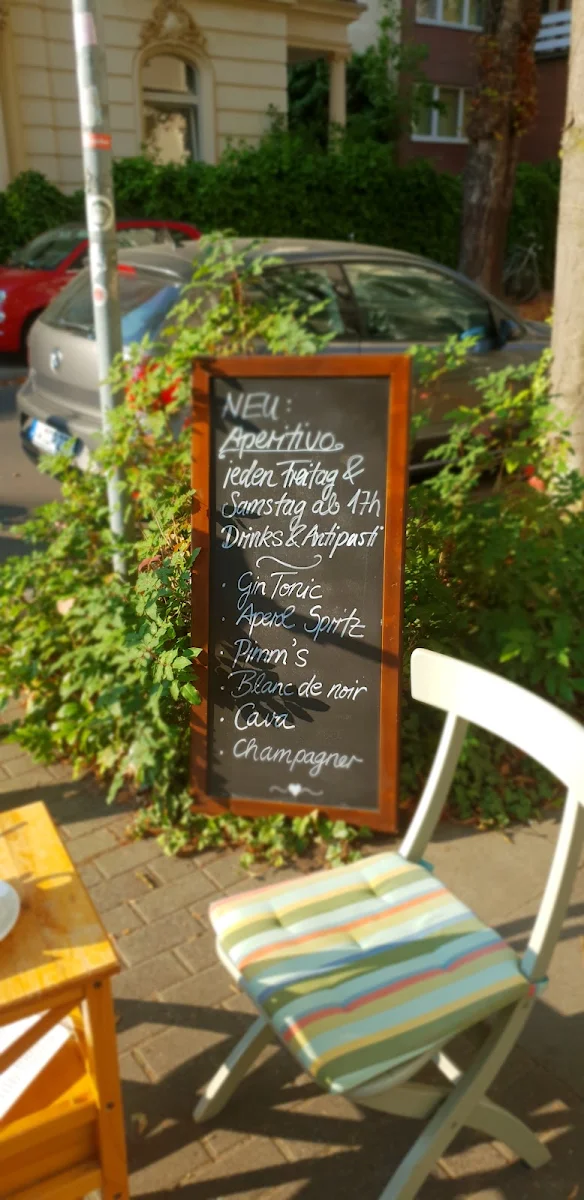 NEU:
Aperitivo
jeden Freitag &
Samstag ab 17h
Drinks & Antipasti
· Gin Tonic
· Aperol Spritz
· Pimm's
· Blanc de noir
· Cava
· Champagner